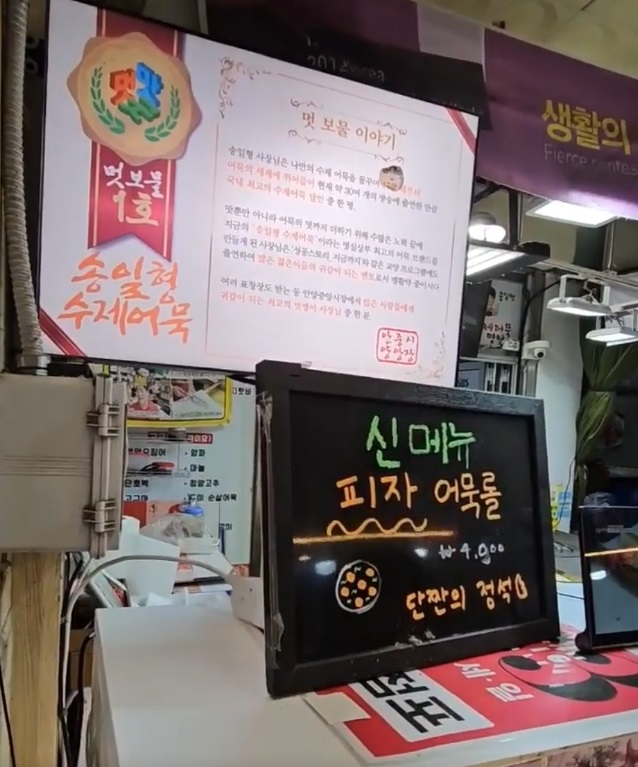 멋맛
멋보물
1호
송일형
수제어묵
멋 보물 이야기
송일형 사장님은 나만의 수제 어묵을 꿈꾸며
어묵의 세계에 뛰어들어 현재 약 30여 개의 방송에 출연한 만큼
국내 최고의 수제어묵 달인 중 한 명.
맛뿐만 아니라 어묵의 멋까지 더하기 위해 수많은 노력 끝에
지금의 '송일형 수제어묵' 이라는 명실상부 최고의 어묵 브랜드를
만들게 된 사장님은 '성공스토리, 지금까지'와 같은 교양 프로그램에도
출연하여 많은 젊은이들의 귀감이 되는 멘토로서 생활약 중이시다
여러 표창장도 받는 등 안양중앙시장에서 많은 사람들에게
귀감이 되는 최고의 멋쟁이 사장님 중 한 분.
생활의
Fierce contes
신메뉴
피자 어묵롤
₩4,000
단짠의 정석
양파
마늘
청양고추
단호박
고구마